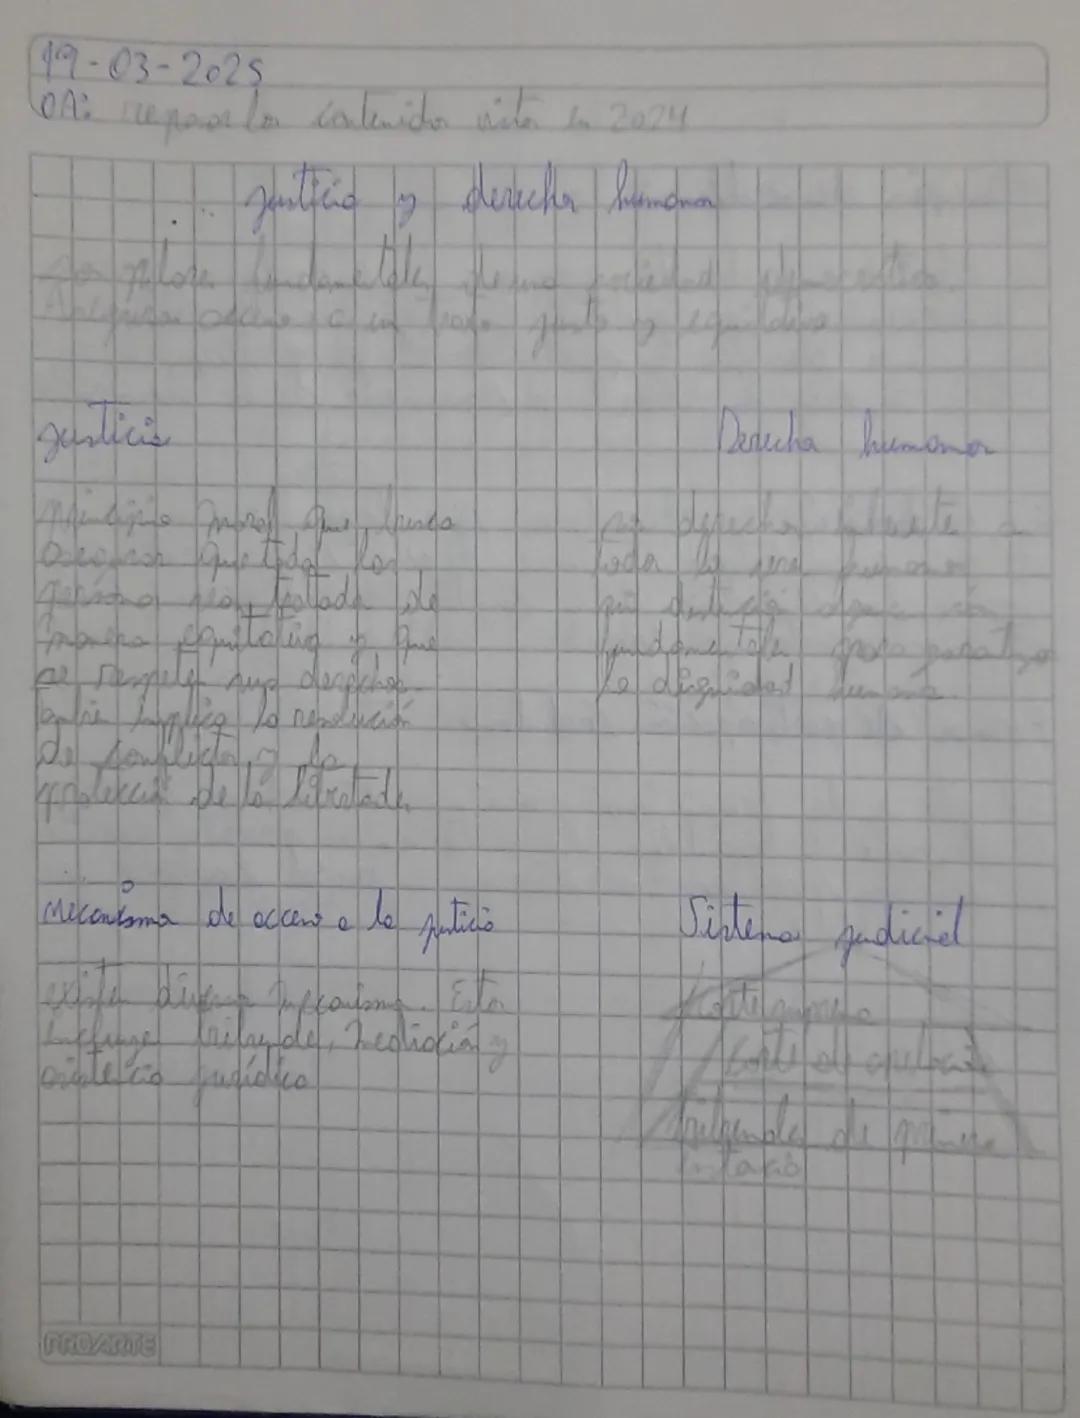 19-03-2025
OA: repasar los contenidos vistos en 2024
justicia y derechos humanos
Son valores fundamentales de una sociedad democrática.
Aseguran acceso a un trato justo y equitativo
justicia
principio moral que busca
asegurar que todas las
personas sean tratadas de
manera equitativa y que
se respeten sus derechos
implica la resolución
de conflictos y la
protección de la libertades
Derechos humanos
son derechos
todos los seres humanos
sin distinción alguna son
fundamentales para garantizar
la dignidad humana
mecanismos de acceso a la justicia
existen diversos mecanismos. Estos
tribunales, mediación y
asistencia jurídica
Sistema judicial
corte suprema
corte de apelación
tribunales de primera
instancia
PROARTE